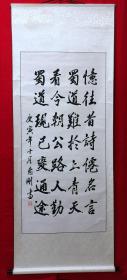 憶往昔詩僊名言
蜀道難於上青天
看今朝公路人勤
蜀道現已變通途
庚寅年十月剛書